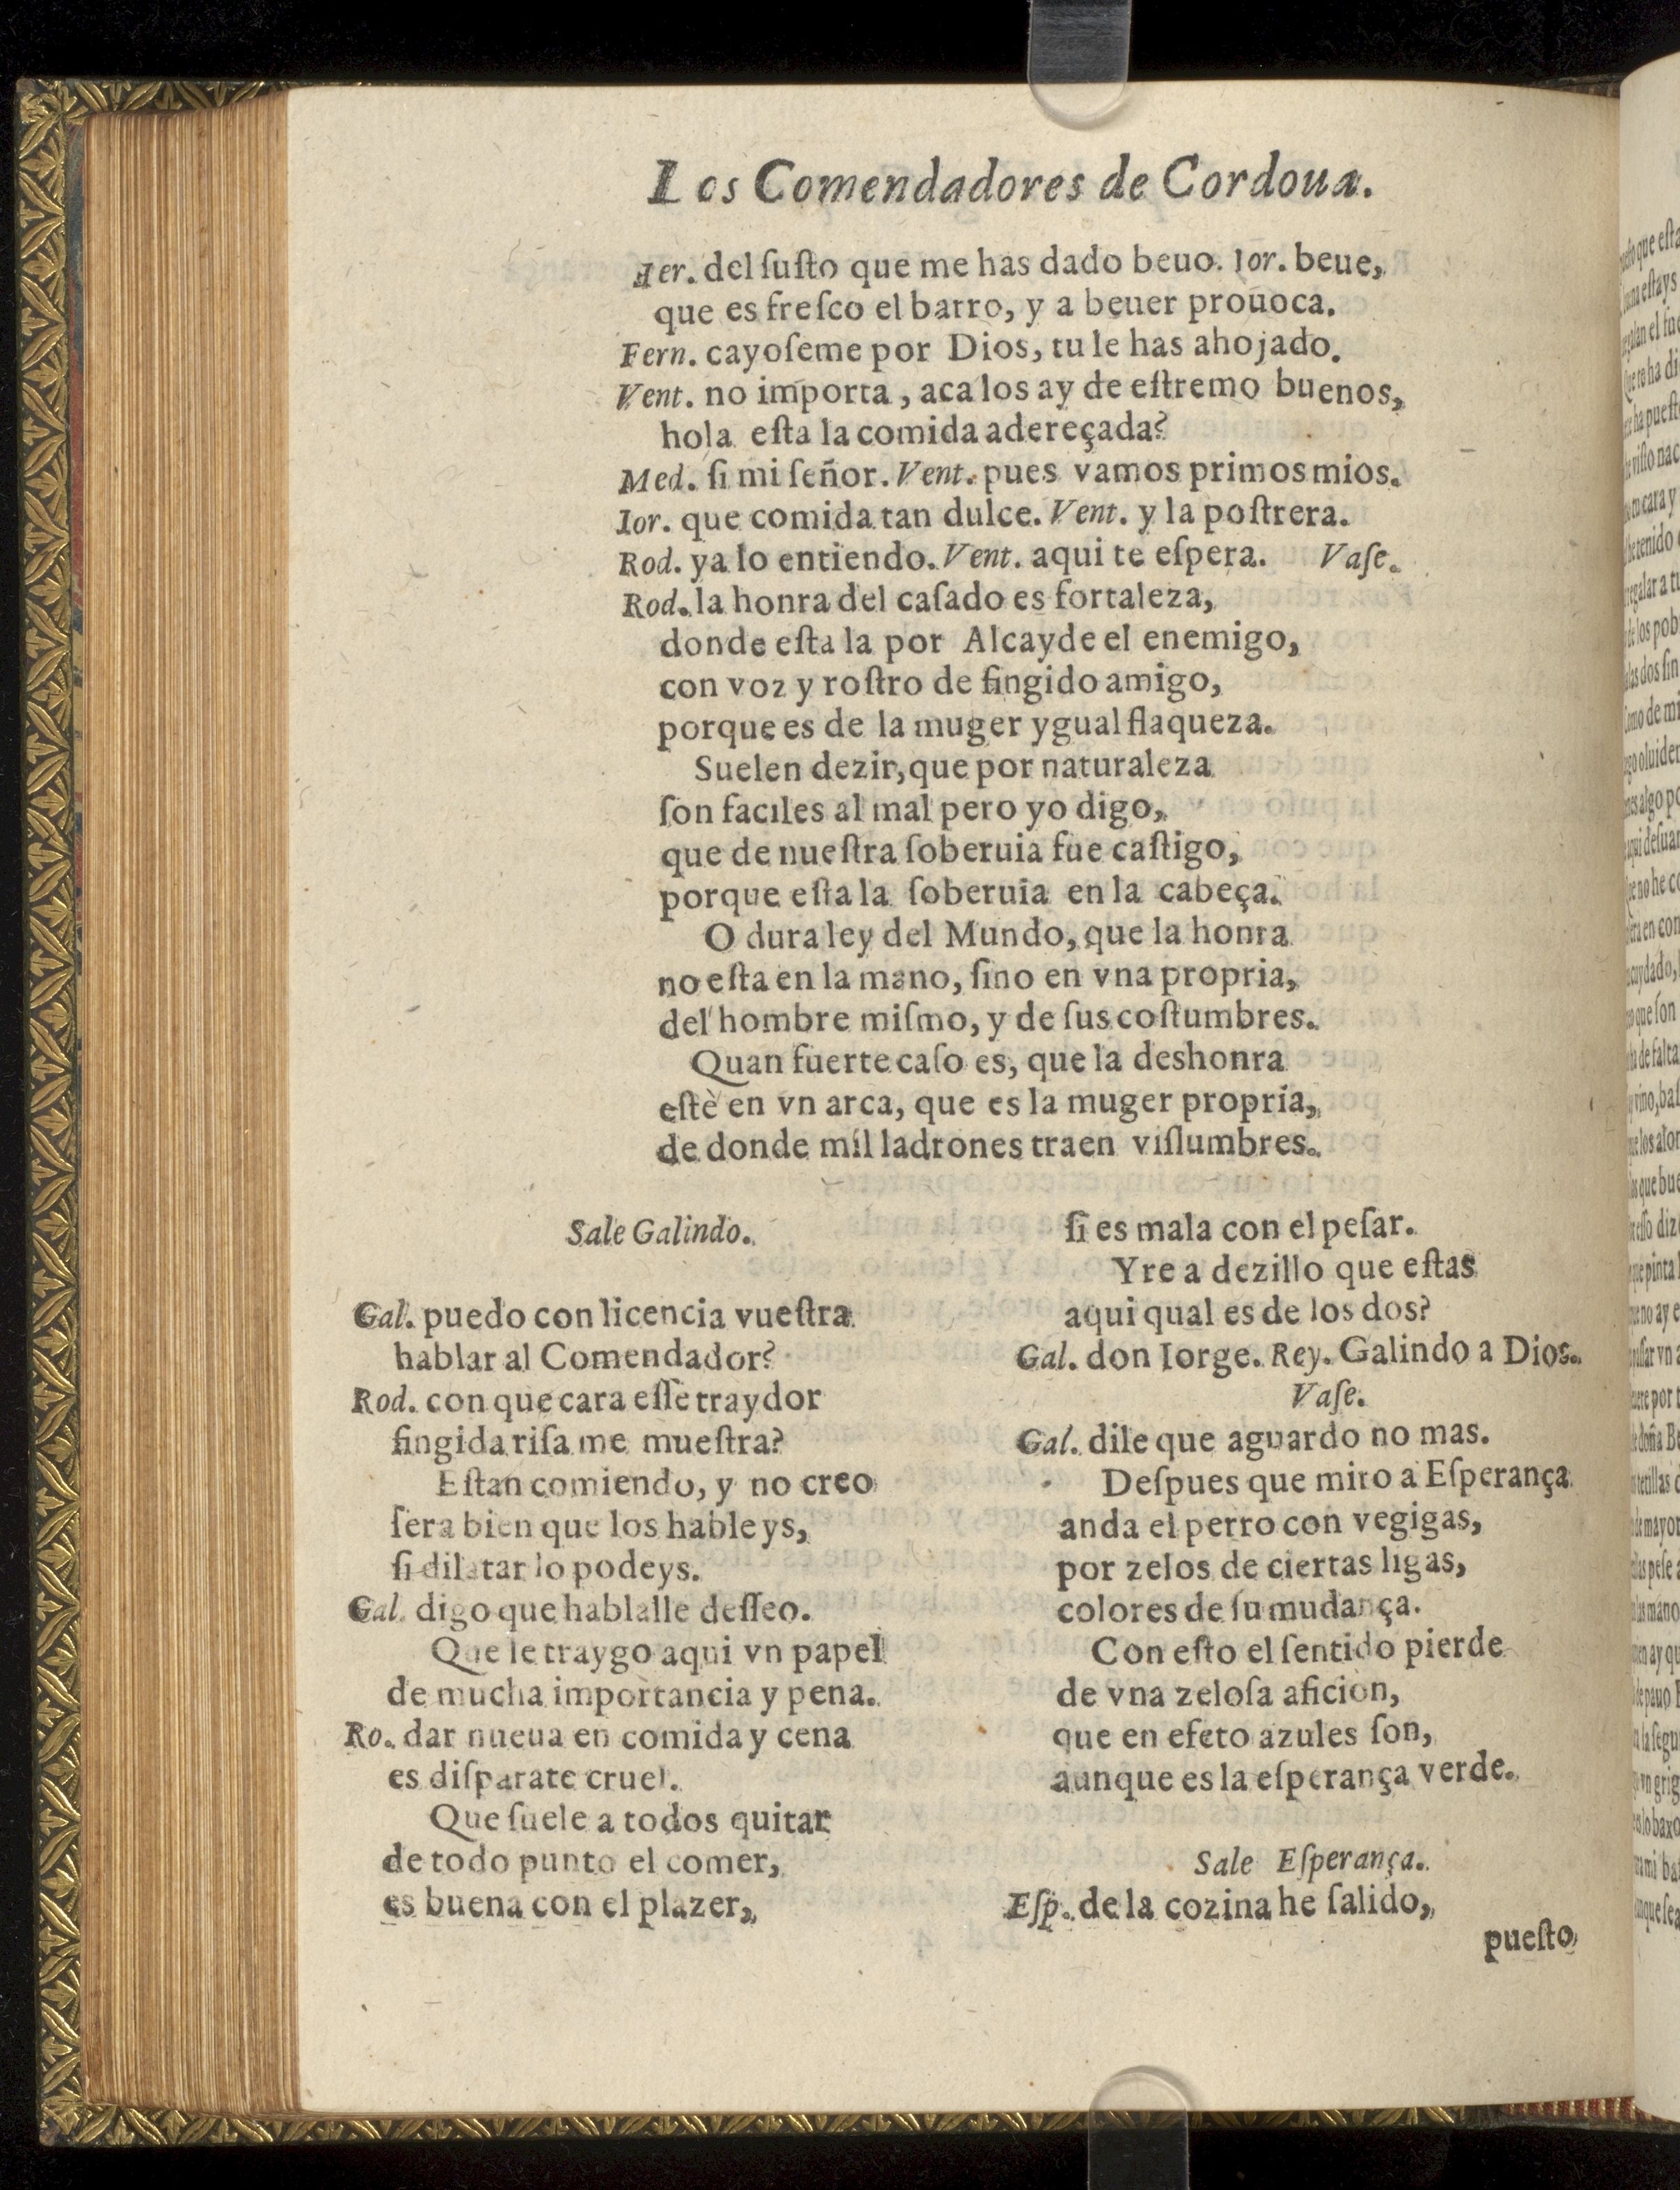 Los Comendadores de Cordoua.
Fer. del ſuſto que me has dado beuo. Ior. beue,
que es freſco el barro, y a beuer prouoca.
Fern. cayoſeme por Dios, tu le has ahojado.
Vent. no importa, aca los ay de eſtremo buenos,
hola eſta la comida adereçada?
Med. ſi mi ſeñor. Vent. pues vamos primos mios.
Ior. que comida tan dulce. Vent. y la poſtrera.
Rod. ya lo entiendo. Vent. aqui te eſpera. Vaſe.
Rod. la honra del caſado es fortaleza,
donde eſta la por Alcayde el enemigo,
con voz y roſtro de fingido amigo,
porque es de la muger ygual flaqueza.
Suelen dezir, que por naturaleza
ſon faciles al mal pero yo digo,
que de nueſtra ſoberuia fue caſtigo,
porque eſta la ſoberuia en la cabeça.
O dura ley del Mundo, que la honra
no eſta en la mano, ſino en vna propria,
del hombre miſmo, y de ſus coſtumbres.
Quan fuerte caſo es, que la deshonra
eſtè en vn arca, que es la muger propria,
de donde mil ladrones traen viſlumbres.
Sale Galindo.
Gal. puedo con licencia vueſtra
hablar al Comendador?
Rod. con que cara eſſe traydor
fingida riſa me mueſtra?
Eſtan comiendo, y no creo
ſera bien que los hableys,
ſi dilatar lo podeys.
Gal. digo que hablalle deſſeo.
Que le traygo aqui vn papel
de mucha importancia y pena.
Ro. dar nueua en comida y cena
es diſparate cruel.
Que ſuele a todos quitar
de todo punto el comer,
es buena con el plazer,
ſi es mala con el peſar.
Yre a dezillo que eſtas
aqui qual es de los dos?
Gal. don Iorge. Rey. Galindo a Dios.
Vaſe.
Gal. dile que aguardo no mas.
Deſpues que miro a Eſperança
anda el perro con vegigas,
por zelos de ciertas ligas,
colores de ſu mudança.
Con eſto el ſentido pierde
de vna zeloſa aficion,
que en efeto azules ſon,
aunque es la eſperança verde.
Sale Eſperança.
Eſp. de la cozina he ſalido,
pueſto